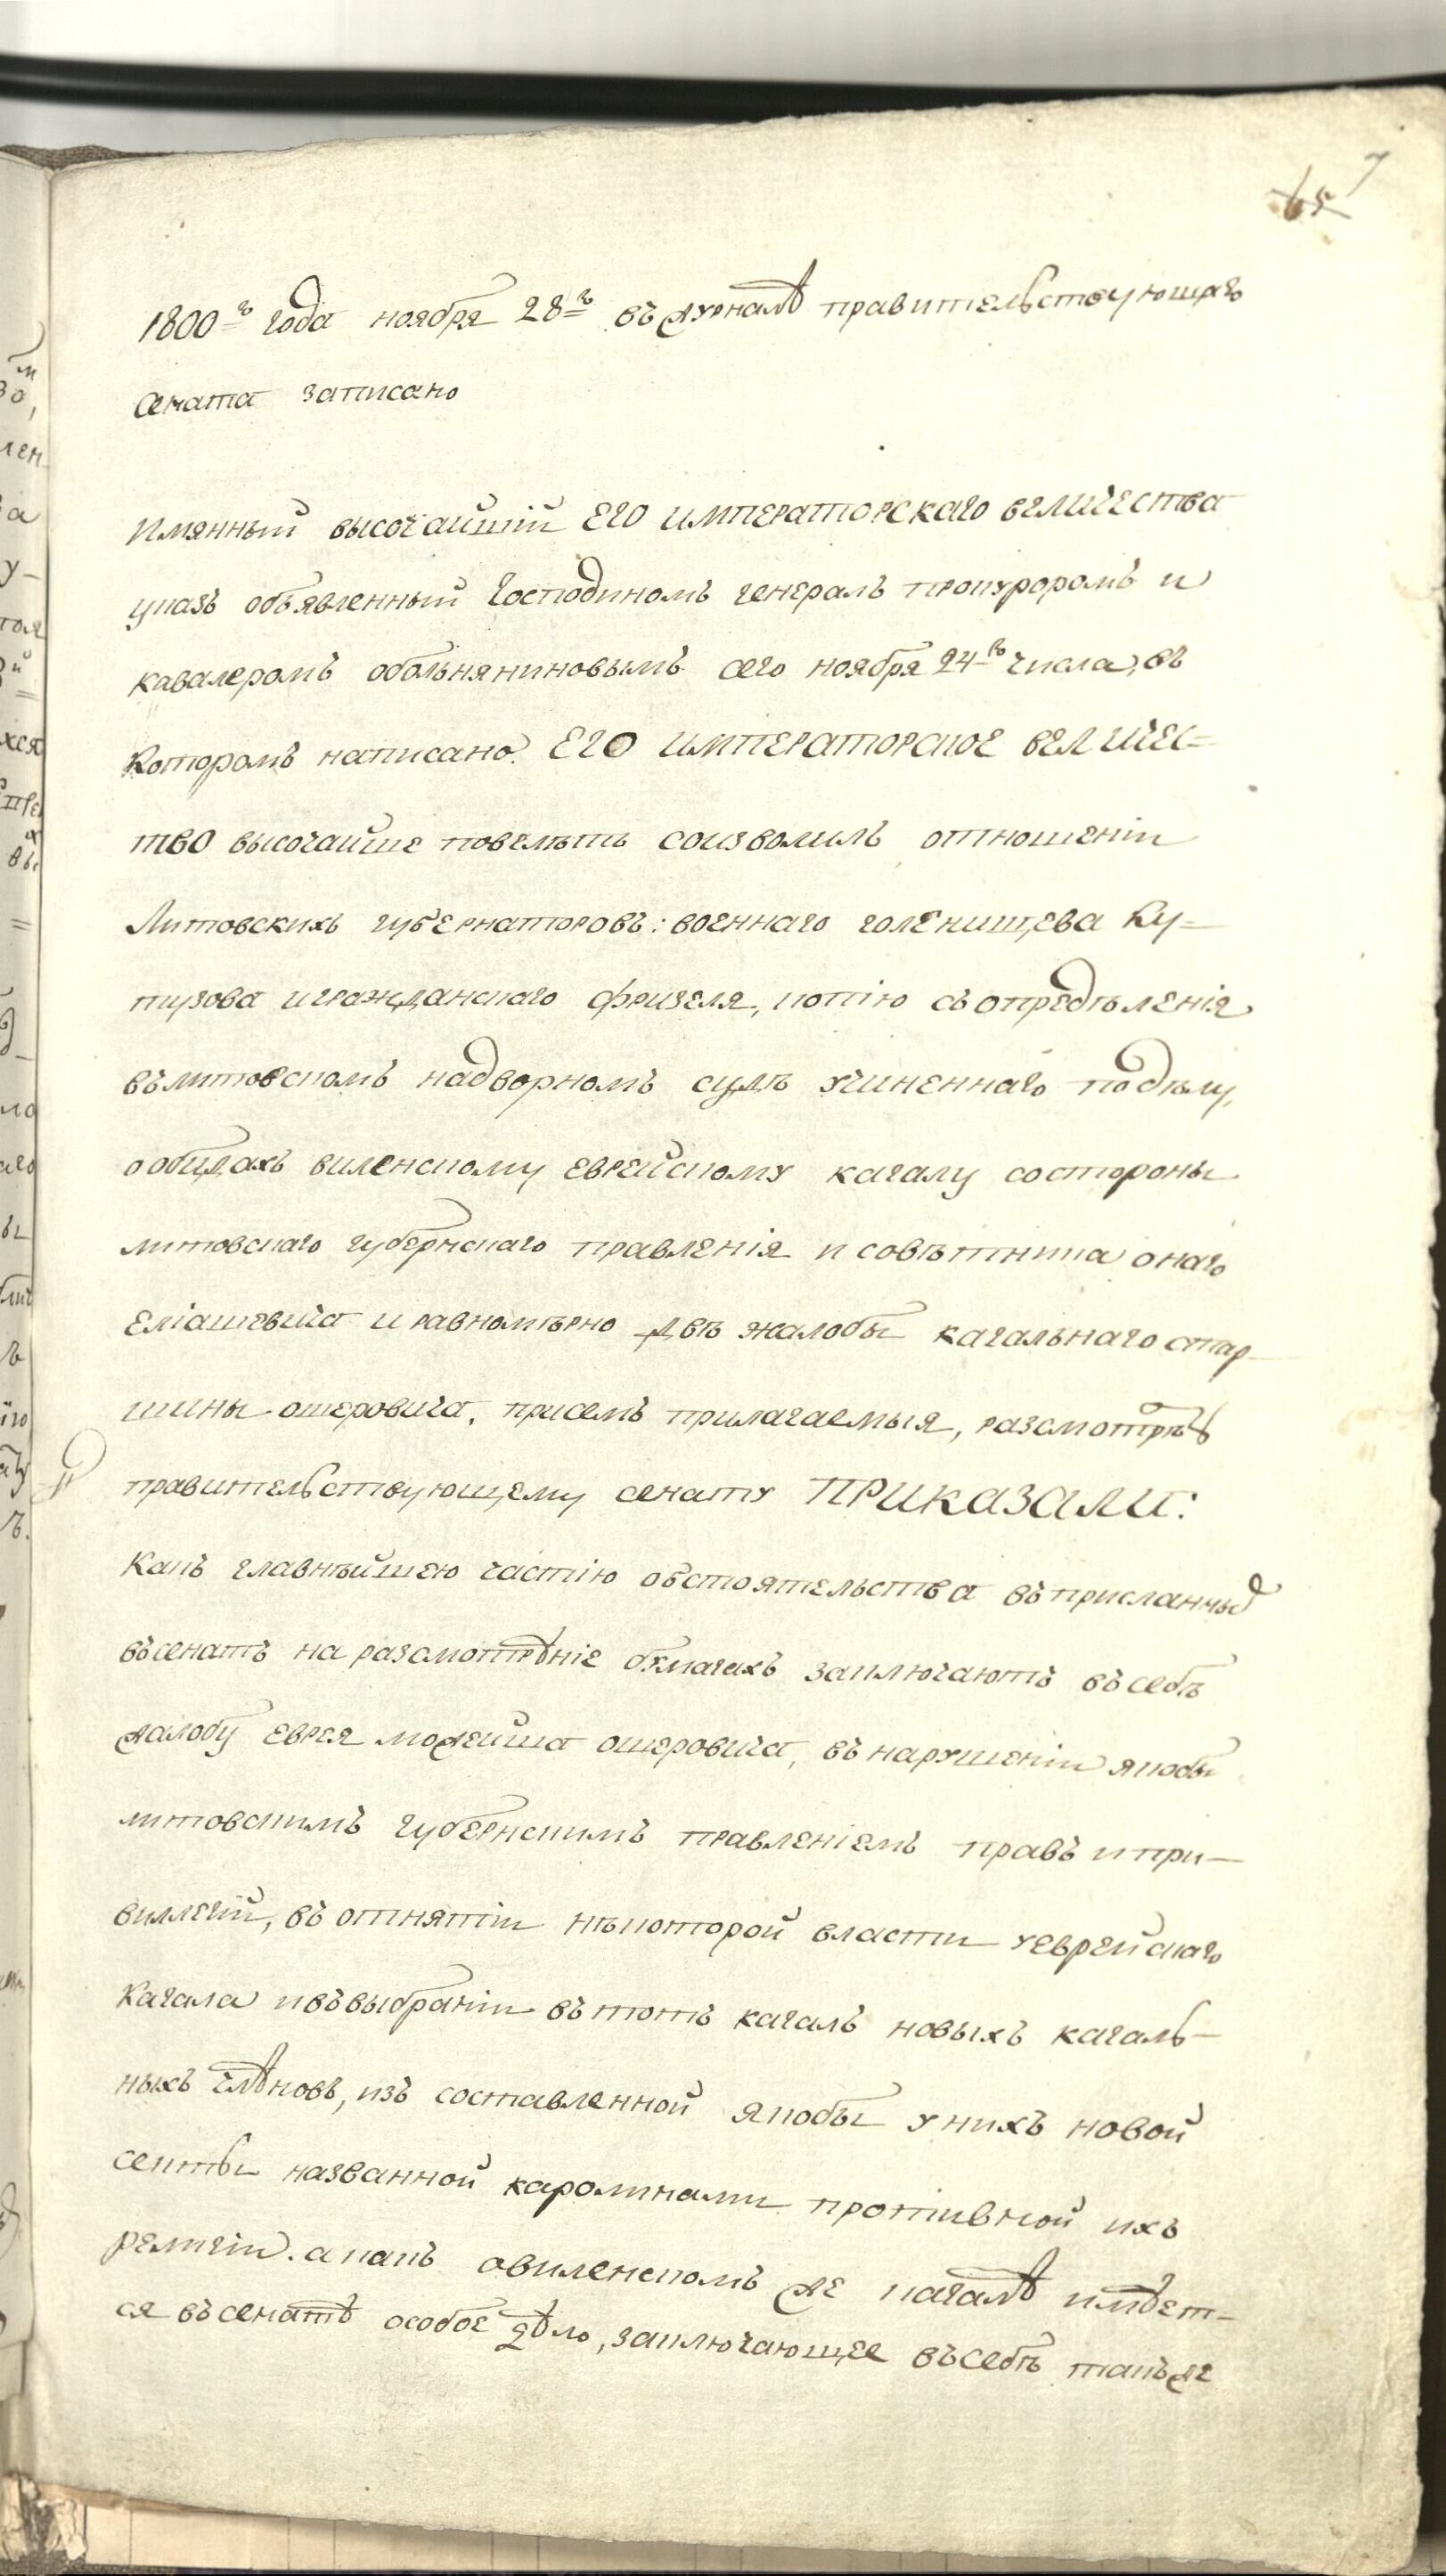 65 7
1800го года ноября 28го въ журналѣ правительствующаго
сената записано
имянный высочайшій ЕГО ИМПЕРАТОРСКАГО ВЕЛИЧЕСТВА
указъ объявленный господиномъ генералъ прокуроромъ и
кавалеромъ обольяниновымъ сего ноября 24го числа, въ
которомъ написано. ЕГО ИМПЕРАТОРСКОЕ ВЕЛИЧЕС=
ТВО высочайше повелѣть соизволилъ отношеніи
Литовскихъ губернаторовъ: военнаго голенищева Ку=
тузова и гражданскаго фризеля, копію съ опредѣленія
въ литовскомъ надворномъ судѣ учиненнаго по дѣлу,
о обидахъ виленскому еврейскому кагалу со стороны
литовскаго губернскаго правленія и совѣтника онаго
еліашевича и равномѣрно двѣ жалобы кагальнаго стар-
шины ошеровича, присемъ прилагаемыя, разсмотрѣть
правительствующему сенату ПРИКАЗАЛИ:
Какъ главнѣйшею частію обстоятельства въ присланныхъ
въ сенатъ на разсмотрѣніе бумагахъ заключаютъ въ себѣ
жалобу еврея можейша ошеровича, въ нарушеніи якобы
литовскимъ губернскимъ правленіемъ правъ и при-
виллегій, въ отнятіи нѣкоторой власти у еврейскаго
кагала и въ выбраніи въ тотъ кагалъ новыхъ кагаль-
ныхъ члѣновъ, изъ составленной якобы у нихъ новой
секты названной каролинами противной ихъ
религіи. а какъ о виленскомъ же кагалѣ имѣет-
ся въ сенатѣ особое дѣло, заключающее въ себѣ такъ же